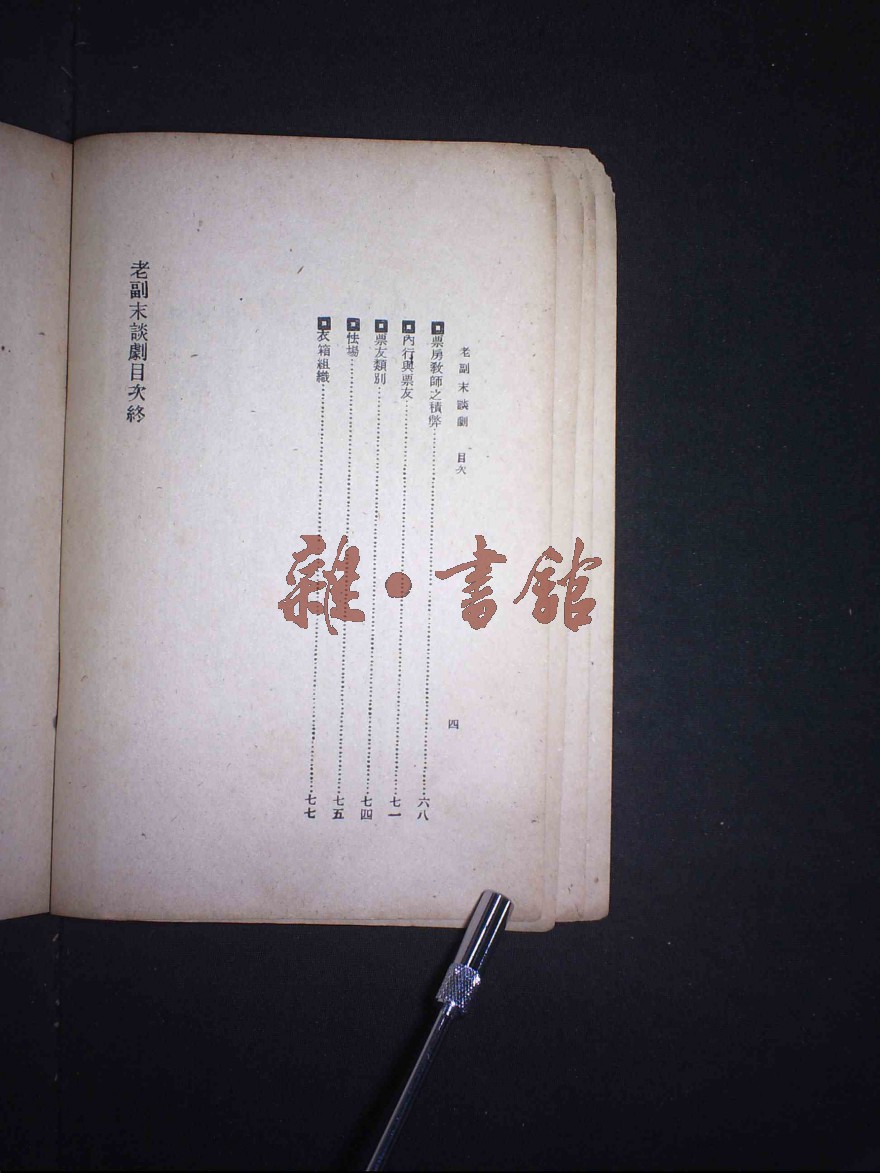 老副末談劇 目次 四
票房教師之積弊……六八
內行與票友……七一
票友類別……七四
怯場……七五
衣箱組織……七七
老副末談劇目次終
雜·書館